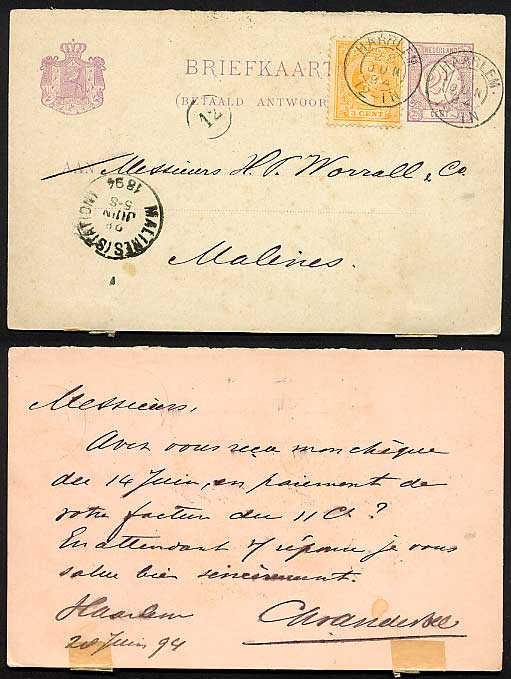 BRIEFKAART
(BETAALD ANTWOORD
NEDERLAND
5 CENT
CENT
HAARLEM
28
JUN
94
12-1N
HAARLEM
JUN
94
1N
12
AAN Messieurs H. P. Worrall & Co
Malines.
MALINES (STATION)
28
JUIN
5-8
1894
Messieurs,
Avez vous reçu mon chèque
du 14 Juin, en paiement de
votre facture du 11 Ct?
En attendant V/ réponse je vous
salue bien sincèrement.
Haarlem
28 Juin 94